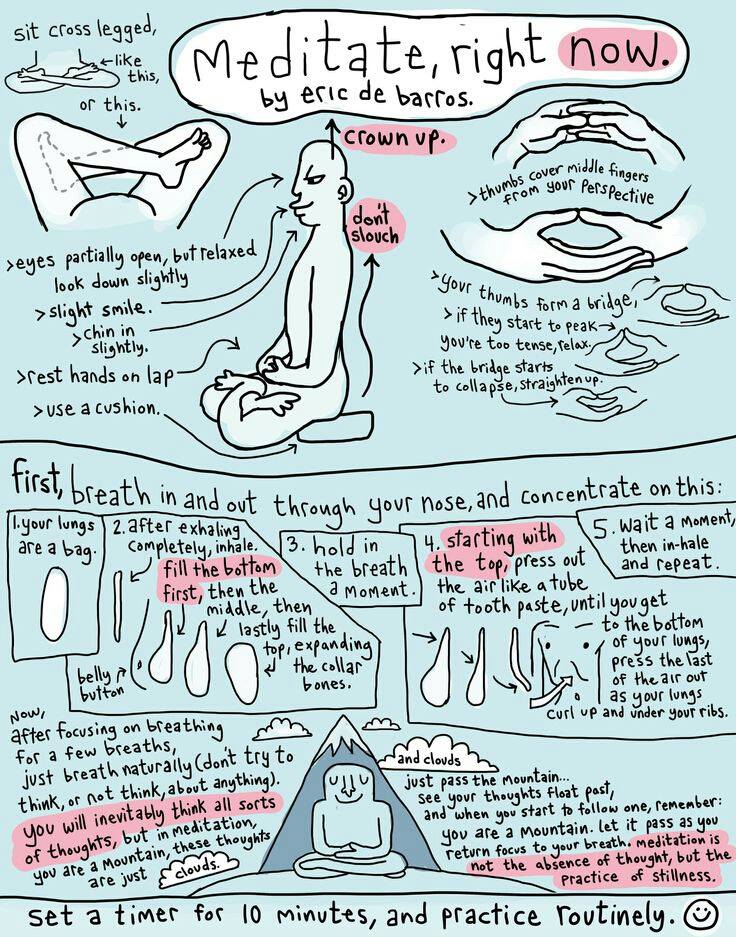 sit cross legged,
←like
this,
or this.
Meditate, right now.
by eric de barros.
crown up.
don't
slouch
>eyes partially open, but relaxed
look down slightly
>slight smile.
>chin in
slightly.
>rest hands on lap
>use a cushion.
>thumbs cover middle fingers
from your perspective
>your thumbs form a bridge,
>if they start to peak→
you're too tense, relax.
>if the bridge starts
to collapse, straighten up.
first, breath in and out through your nose, and concentrate on this:
1. your lungs
are a bag.
2. after exhaling
completely, inhale.
fill the bottom
first, then the
middle, then
lastly fill the
top, expanding
the collar
bones.
belly
button
3. hold in
the breath
a moment.
4. starting with
the top, press out
the air like a tube
of tooth paste, until you get
to the bottom
of your lungs,
press the last
of the air out
as your lungs
curl up and under your ribs.
5. wait a moment,
then in-hale
and repeat.
Now,
after focusing on breathing
for a few breaths,
just breath naturally (don't try to
think, or not think, about anything).
you will inevitably think all sorts
of thoughts, but in meditation,
you are a mountain, these thoughts
are just clouds.
and clouds
just pass the mountain...
see your thoughts float past,
and when you start to follow one, remember:
you are a mountain. let it pass as you
return focus to your breath. meditation is
not the absence of thought, but the
practice of stillness.
set a timer for 10 minutes, and practice routinely. ☺